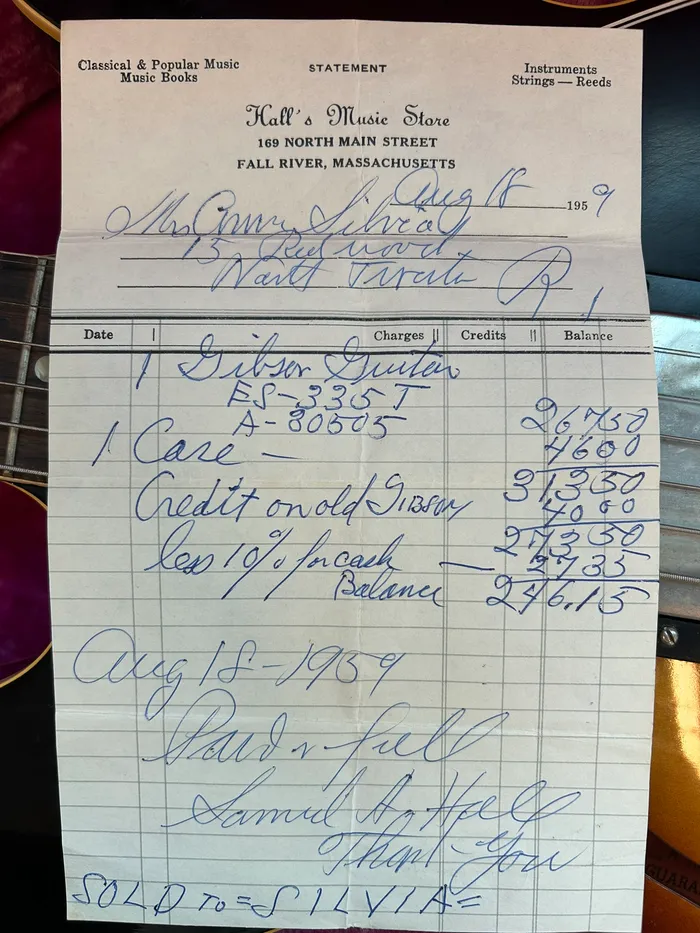 Classical & Popular Music
Music Books
STATEMENT
Instruments
Strings — Reeds
Hall's Music Store
169 NORTH MAIN STREET
FALL RIVER, MASSACHUSETTS
Aug 18 1959
Silvia
15 Redwood
North R.I
Date Charges Credits Balance
1 Gibson Guitar
ES-335T
A-30505 26750
1 Case — 4600
31350
Credit on old GIBSON 4000
27350
less 10% for cash — 2735
Balance 246.15
Aug 18-1959
Paid in full
Samuel A. Hall
Thank You
SOLD TO = SILVIA =
GUARA